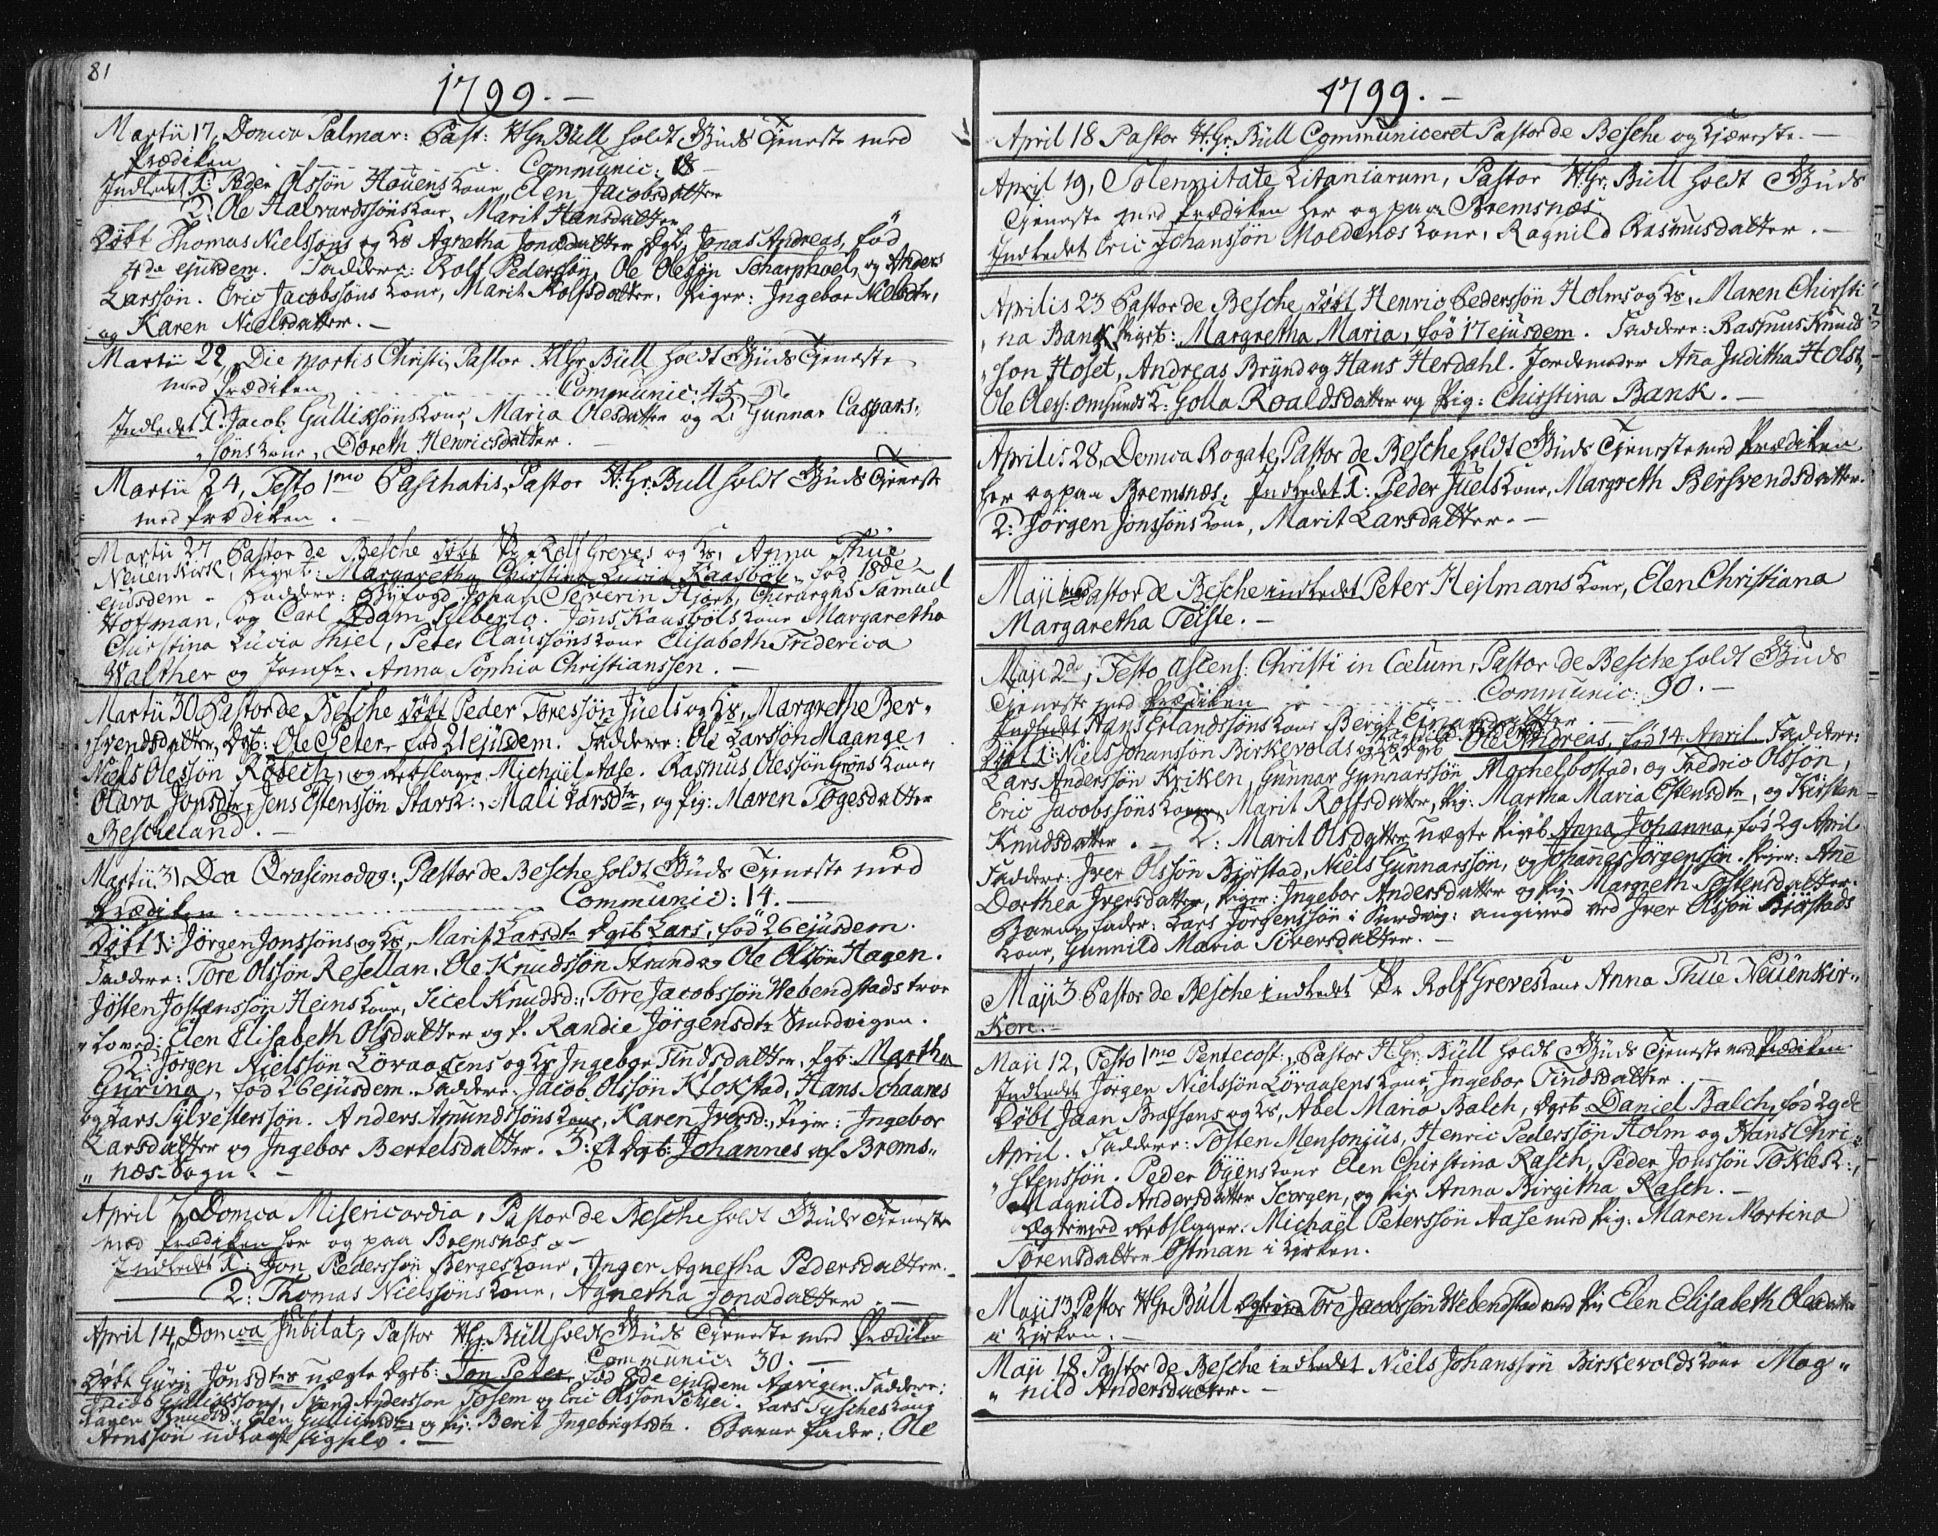 81
1799. —
Martii 17, Domca Palmar: Past: Hr. Büll holdt Guds Tjeneste med
Prædiken Communic: 18
Indledet 1: Peder Olssøn Houens Kone, Elen Jacobsdatter
2. Ole Halvardssøns Kone, Marit Hansdatter
Døbt Thomas Nielssøns og Hs Agnetha Jonædatter Dgb. Jonas Andreas, fød
4de ejusdem. Faddere: Rolf Pederssøn, Ole Olssøn Scharphoel, og Anders
Larssøn. Eric Jacobssøns Kone, Marit Rolfsdatter, Piger: Ingebor Nielsdtr,
og Karen Nielsdatter. —
Martii 22, Die Mortis Christi, Pastor Hr Büll holdt Guds Tjeneste
med Prædiken Communic: 45. —
Indledet 1. Jacob Gullikssøns Kone, Maria Olesdatter og 2. Gunnar Caspars-
søns Kone, Doreth Henricsdatter. —
Martii 24, Festo 1mo Paschatis, Pastor Hr. Büll holdt Guds Tjeneste
med Prædiken. —
Martii 27 Pastor de Besche døbt Rolf Greves og Hs. Anna Thue
Neuenkirk, Piget: Margaretha Christina Lucia Kaasbøll, fød 18de
ejusdem. Faddere: Byfogd Johan Severin Hjort, Chirurgus Samuel
Hofman, og Carl Adam Silberto. Jens Kaasbøls Kone Margaretha
Christina Lucia Thiel, Peter Claussøns Kone Elisabeth Friderica
Walther og Jomfr. Anna Sophia Christianssen. —
Martii 30 Pastor de Besche døbt Peder Toressøn Juels og Hs, Margrethe Ber-
svendsdatter, Dgb: Ole Peter, fød 21 ejusdem. Faddere: Ole Larssøn Maange,
Niels Olessøn Røsech, og Rebslager Michael Aase. Rasmus Olessøn Gröns Kone,
Olava Jonsdtr, Jens Estenssøn Stars K:, Mali Larsdtr, og Pig: Maren Togesdatter
Bescheland. —
Martii 31, Dca Qvasimodog:, Pastor de Besche holdt Guds Tjeneste med
Prædiken Communic: 14. —
Døbt 1: Jørgen Jonssøns og Hs, Marit Larsdtr Dgb Lars, fød 26 ejusdem.
Faddere: Tore Olssøn Resellan, Ole Knudssøn Strand og Ole Olssøn Hagen.
Josten Jostenssøn Heins Kone, Sicel Knudsd:, Tore Jacobssøn Webenstads troe
„loved: Elen Elisabeth Olsdatter og P. Randie Jørgensdtr Smedvigen.
2: Jørgen Nielssøn Løvaasens og Hs Ingebor Findsdatter, Pgb: Martha
Guring, fød 26 ejusdem. Faddere: Jacob Olssøn Klokstad, Hans Schaanes
og Lars Sylvesterssøn. Anders Amundssøns Kone, Karen Iversd:, Piger: Ingebor
Larsdatter og Ingebor Bertelsdatter. 3: Et Dgb: Johannes af Brems-
„næs Sogn. —
April 7, Domca Misericordia, Pastor de Besche holdt Guds Tjeneste
med Prædiken her og paa Bremsnæs. —
Indledet 1: Jon Pederssøn Berges Kone, Inger Agnetha Pedersdatter.
2: Thomas Nielssøns Kone, Agnetha Jonædatter —
April 14, Domca Jubilate, Pastor Hr. Büll holdt Guds Tjeneste med Prædiken
Communic: 30. —
Døbt Guri Jonsdtrs uægte Dgb: Jon Peter, fød 8de ejusdem Faddere:
Jacob Gullikssøn, Svend Anderssøn Fosem og Eric Olssøn Lars Tysches Kone
Karen Knudsd:, Elen Gulliksdtr, og Pig: Berit Ingebrigtsdtr. Barne Fader: Ole
Arnssøn udlagt sig selv. —
1799. —
April 18 Pastor Hr. Büll Communiceret Pastor de Besche og Kjæreste. —
April 19, Solennitate Litaniarum, Pastor Hr. Büll holdt Guds
Tjeneste med Prædiken her og paa Bremsnæs
Indledet Eric Johanssøn Moldenæs Kone, Ragnild Rasmusdatter. —
Aprilis 23 Pastor de Besche døbt Henric Pederssøn Holms og Hs, Maren Christi
„na Bank Pigeb: Margretha Maria, fød 17 ejusdem. Faddere: Rasmus Knuds
„søn Hoset, Andreas Brynd og Hans Herdahl. Jordemoder Aña Juditha Holst,
Ole Oles: Omsunds K: Golla Roaldsdatter og Pig: Chirstina Bank. —
Aprilis 28, Domca Rogate, Pastor de Besche holdt Guds Tjeneste med Prædiken
her og paa Bremsnæs. Indledet 1: Peder Juels Kone, Margreth Bersvendsdatter.
2: Jørgen Jonssøns Kone, Marit Larsdatter. —
Maji 1mo Pastor de Besche indledet Peter Hejlmans Kone, Elen Christiana
Margaretha Teiste. —
Maji 2de, Festo Ascens: Christi in Coelum, Pastor de Besche holdt Guds
Tjeneste med Prædiken Communic: 90. —
Indledet Hans Erlandssøns Kone Berit Einarsdatter
Døbt 1: Niels Johanssøn Birkevolds og Hs Dgb Ole Andreas, fød 14 April. Faddere:
Lars Anderssøn Kriken, Gunnar Gunnarssøn Mochelbostad, og Fredric Olssøn,
Eric Jacobssøns Kone, Marit Rolfsdatter, Pig: Martha Maria Estensdtr, og Kirsten
Knudsdatter. — 2: Marit Olsdatter uægte Pigeb. Anna Johanna, fød 29 April
Faddere: Iver Olssøn Biørstad, Niels Gunnarssøn, og Johannes Jørgenssøn. Piger: Ane
Dorthea Iversdatter, Piger: Ingebor Andersdatter og Pig. Margreth Tostensdatter.
Barne Fader: Lars Jørgenssøn i angived ved Iver Olssøn Biørstads
Kone, Gunnild Maria Siversdatter. —
Maji 3 Pastor de Besche indledet Rolf Greves Kone Anna Thue Neuenkir-
Ken. —
Maji 12, Festo 1mo Pentecost:, Pastor Hr. Büll holdt Guds Tjeneste med Prædiken
Indledet Jørgen Nielssøn Løvaasens Kone, Ingebor Findsdatter. —
Døbt Jaan Brafsens og Hs, Abel Maria Balch, Dgb. Daniel Balch, fød 29de
April. Faddere: Tosten Mensonius, Henric Pederssøn Holm og Hans Chri-
„stenssøn. Peder Öyens Kone Elen Chirstina Rasch, Peder Jonssøn Tokles K:,
Magnild Andersdatter Scorgen, og Pig Anna Birgitha Rasch. —
Ægteviet Rebslager: Michael Peterssøn Aase med Pig: Maren Martina
Sørensdatter Ostman i Kirken.
Maji 13 Pastor Hr Büll Ægteviet Tore Jacobssøn Webenstad med Pig Elen Elisabeth Olsdatter
i Kirken. —
Maji 18 Pastor de Besche indledet Niels Johanssøn Birkevolds Kone Mag-
„nild Andersdatter. —